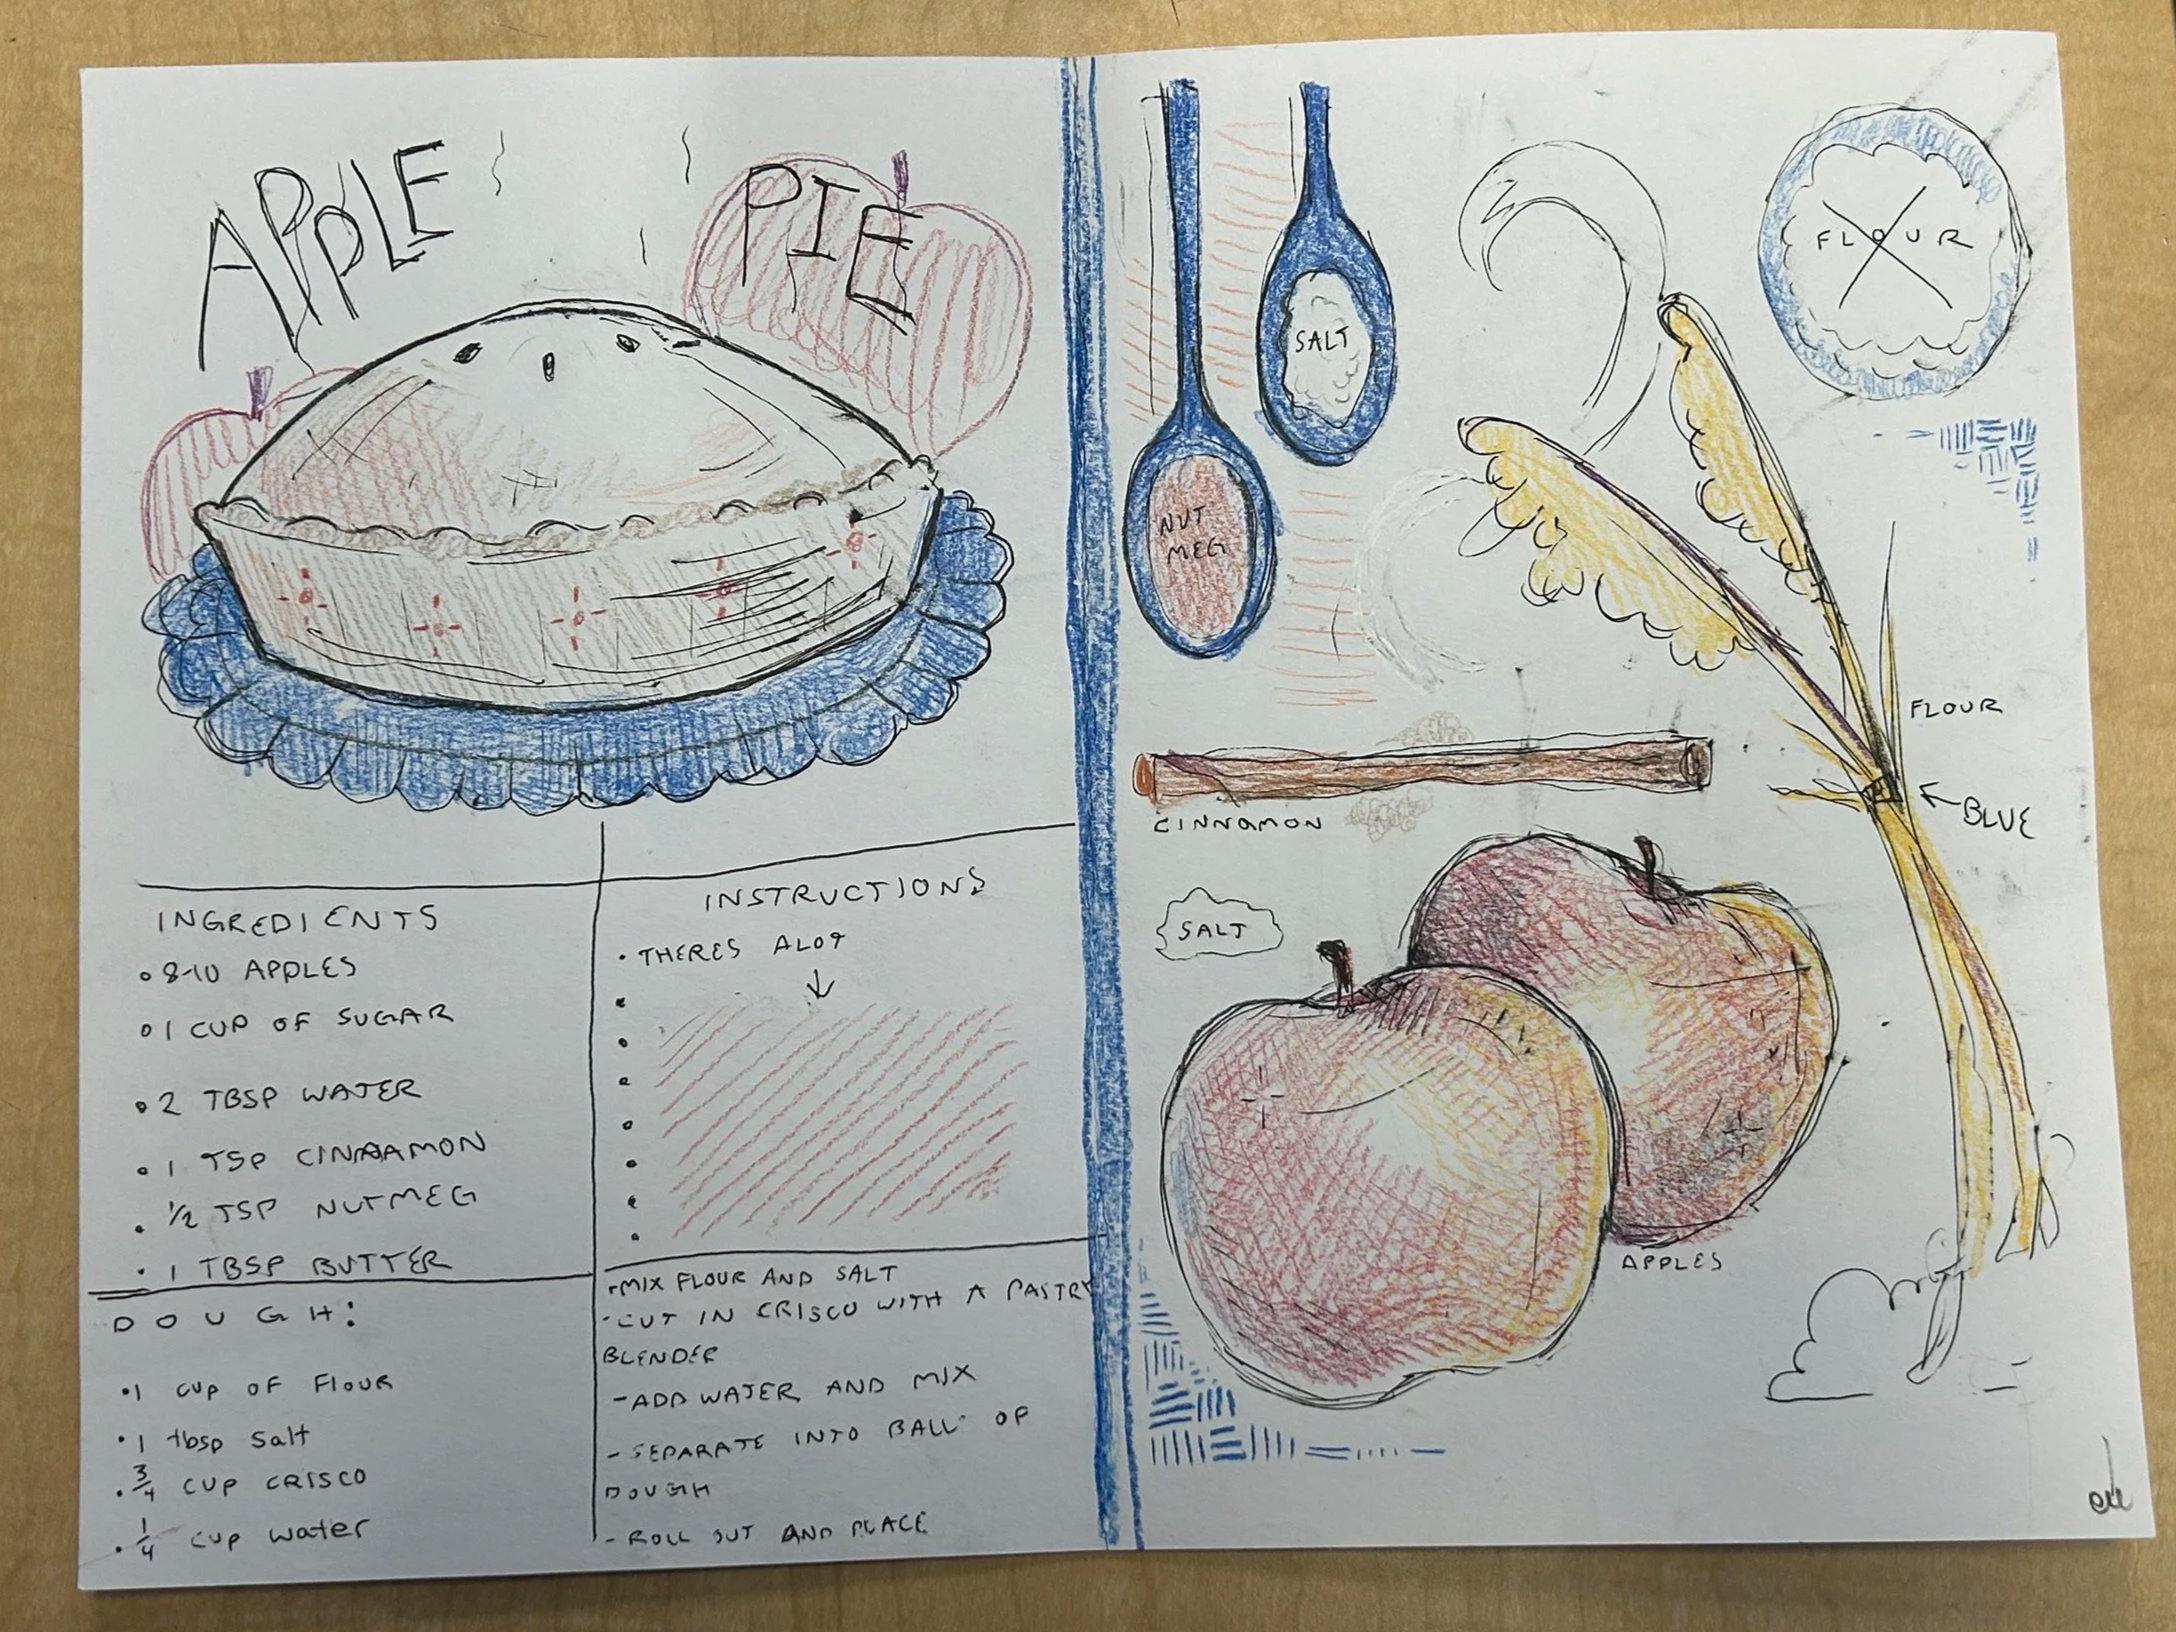 APPLE PIE
INGREDIENTS
• 8-10 APPLES
• 1 CUP OF SUGAR
• 2 TBSP WATER
• 1 TSP CINNAMON
• 1/2 TSP NUTMEG
• 1 TBSP BUTTER
INSTRUCTIONS
• THERES ALOT
↓
DOUGH:
• 1 CUP OF FLOUR
• 1 tbsp salt
• 3/4 CUP CRISCO
• 1/4 CUP water
- MIX FLOUR AND SALT
- CUT IN CRISCO WITH A PASTRY
BLENDER
- ADD WATER AND MIX
- SEPARATE INTO BALL OF
DOUGH
- ROLL OUT AND PLACE
SALT
NUT
MEG
FLOUR
FLOUR
← BLUE
CINNAMON
SALT
APPLES